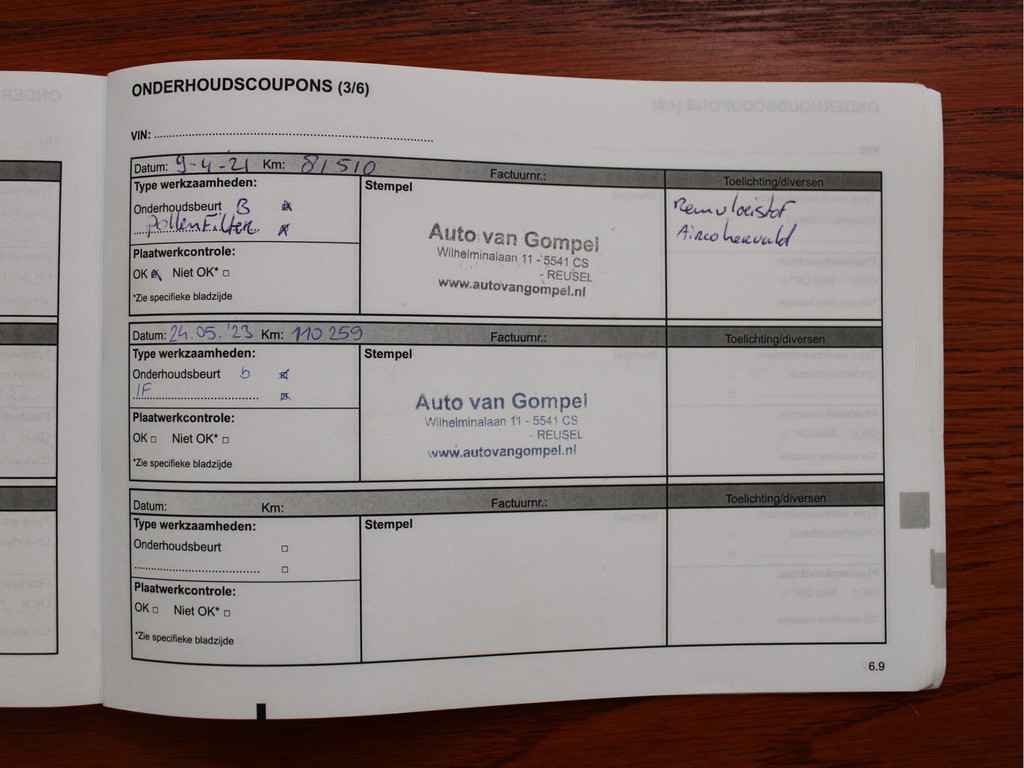 ONDERHOUDSCOUPONS (3/6)
VIN:
Datum: 9-4-21 Km: 81510 Factuurnr.: Toelichting/diversen
Type werkzaamheden:
Stempel
Onderhoudsbeurt B
Pollenfilter
Plaatwerkcontrole:
OK Niet OK*
*Zie specifieke bladzijde
Auto van Gompel
Wilhelminalaan 11 - 5541 CS
- REUSEL
www.autovangompel.nl
Remvloeistof
Datum: 24.05.'23 Km: 110 259 Factuurnr.: Toelichting/diversen
Type werkzaamheden:
Stempel
Onderhoudsbeurt b
IF
Plaatwerkcontrole:
OK Niet OK*
*Zie specifieke bladzijde
Auto van Gompel
Wilhelminalaan 11 - 5541 CS
- REUSEL
www.autovangompel.nl
Datum: Km: Factuurnr.: Toelichting/diversen
Type werkzaamheden:
Stempel
Onderhoudsbeurt
Plaatwerkcontrole:
OK Niet OK*
*Zie specifieke bladzijde
6.9